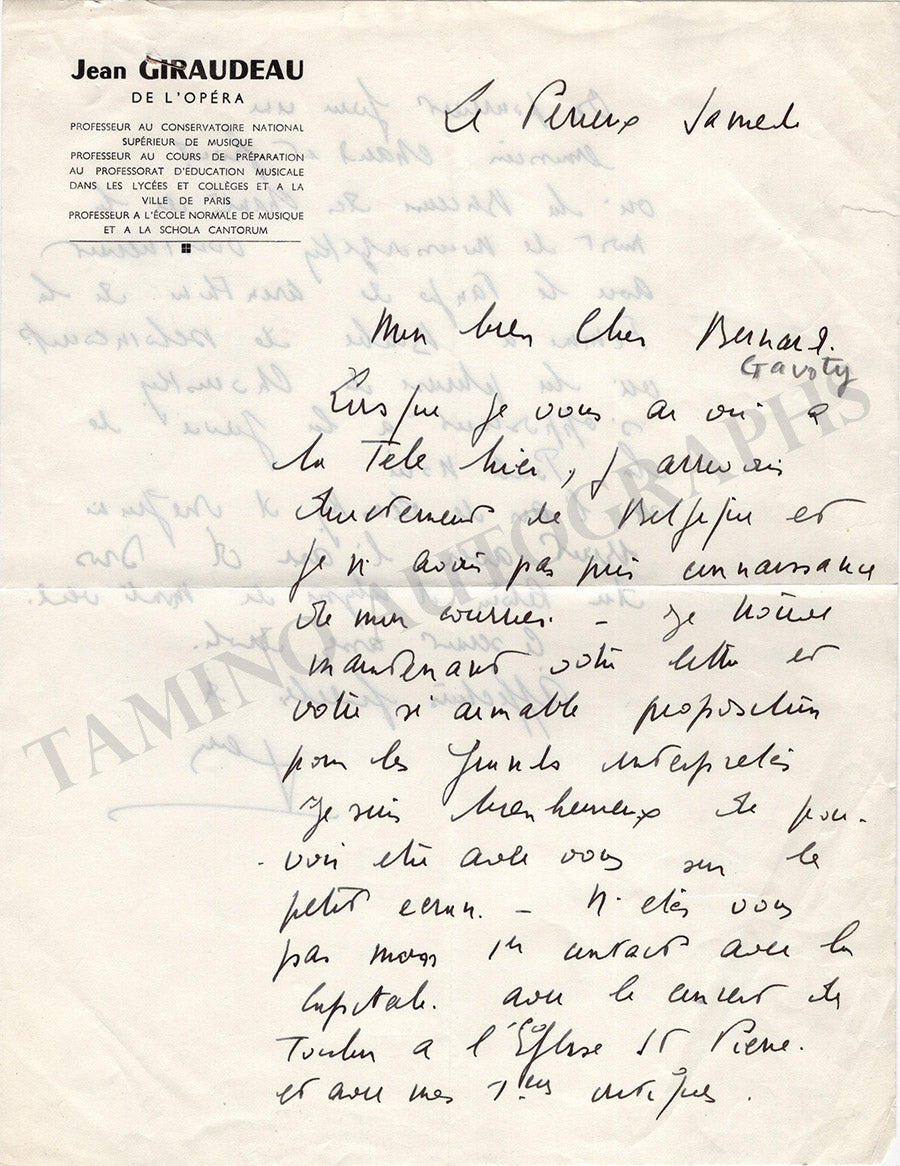 Jean GIRAUDEAU
DE L'OPÉRA
PROFESSEUR AU CONSERVATOIRE NATIONAL
SUPÉRIEUR DE MUSIQUE
PROFESSEUR AU COURS DE PRÉPARATION
AU PROFESSORAT D'EDUCATION MUSICALE
DANS LES LYCÉES ET COLLÈGES ET A LA
VILLE DE PARIS
PROFESSEUR A L'ÉCOLE NORMALE DE MUSIQUE
ET A LA SCHOLA CANTORUM
Le Perreux Samedi
Mon bien Cher Bernard.
Gavoty
Lorsque je vous ai vu a
la Tele hier, j arrivais
directement de Belgique et
je n avais pas pris connaissance
de mon courrier. – Je trouve
maintenant votre lettre et
votre si aimable proposition
pour les Grands interpretes
Je suis bien heureux de pou-
voir etre avec vous sur le
petit ecran. – N etes vous
pas mon 1er contact avec la
Capitale. avec le concert de
Toulon a l'Église St Pierre.
et avec mes 1eres critiques.
TAMINO AUTOGRAPHS